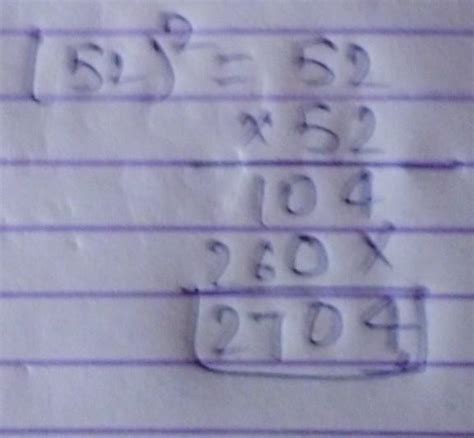 (52)² = 52
× 52
104
260×
2704